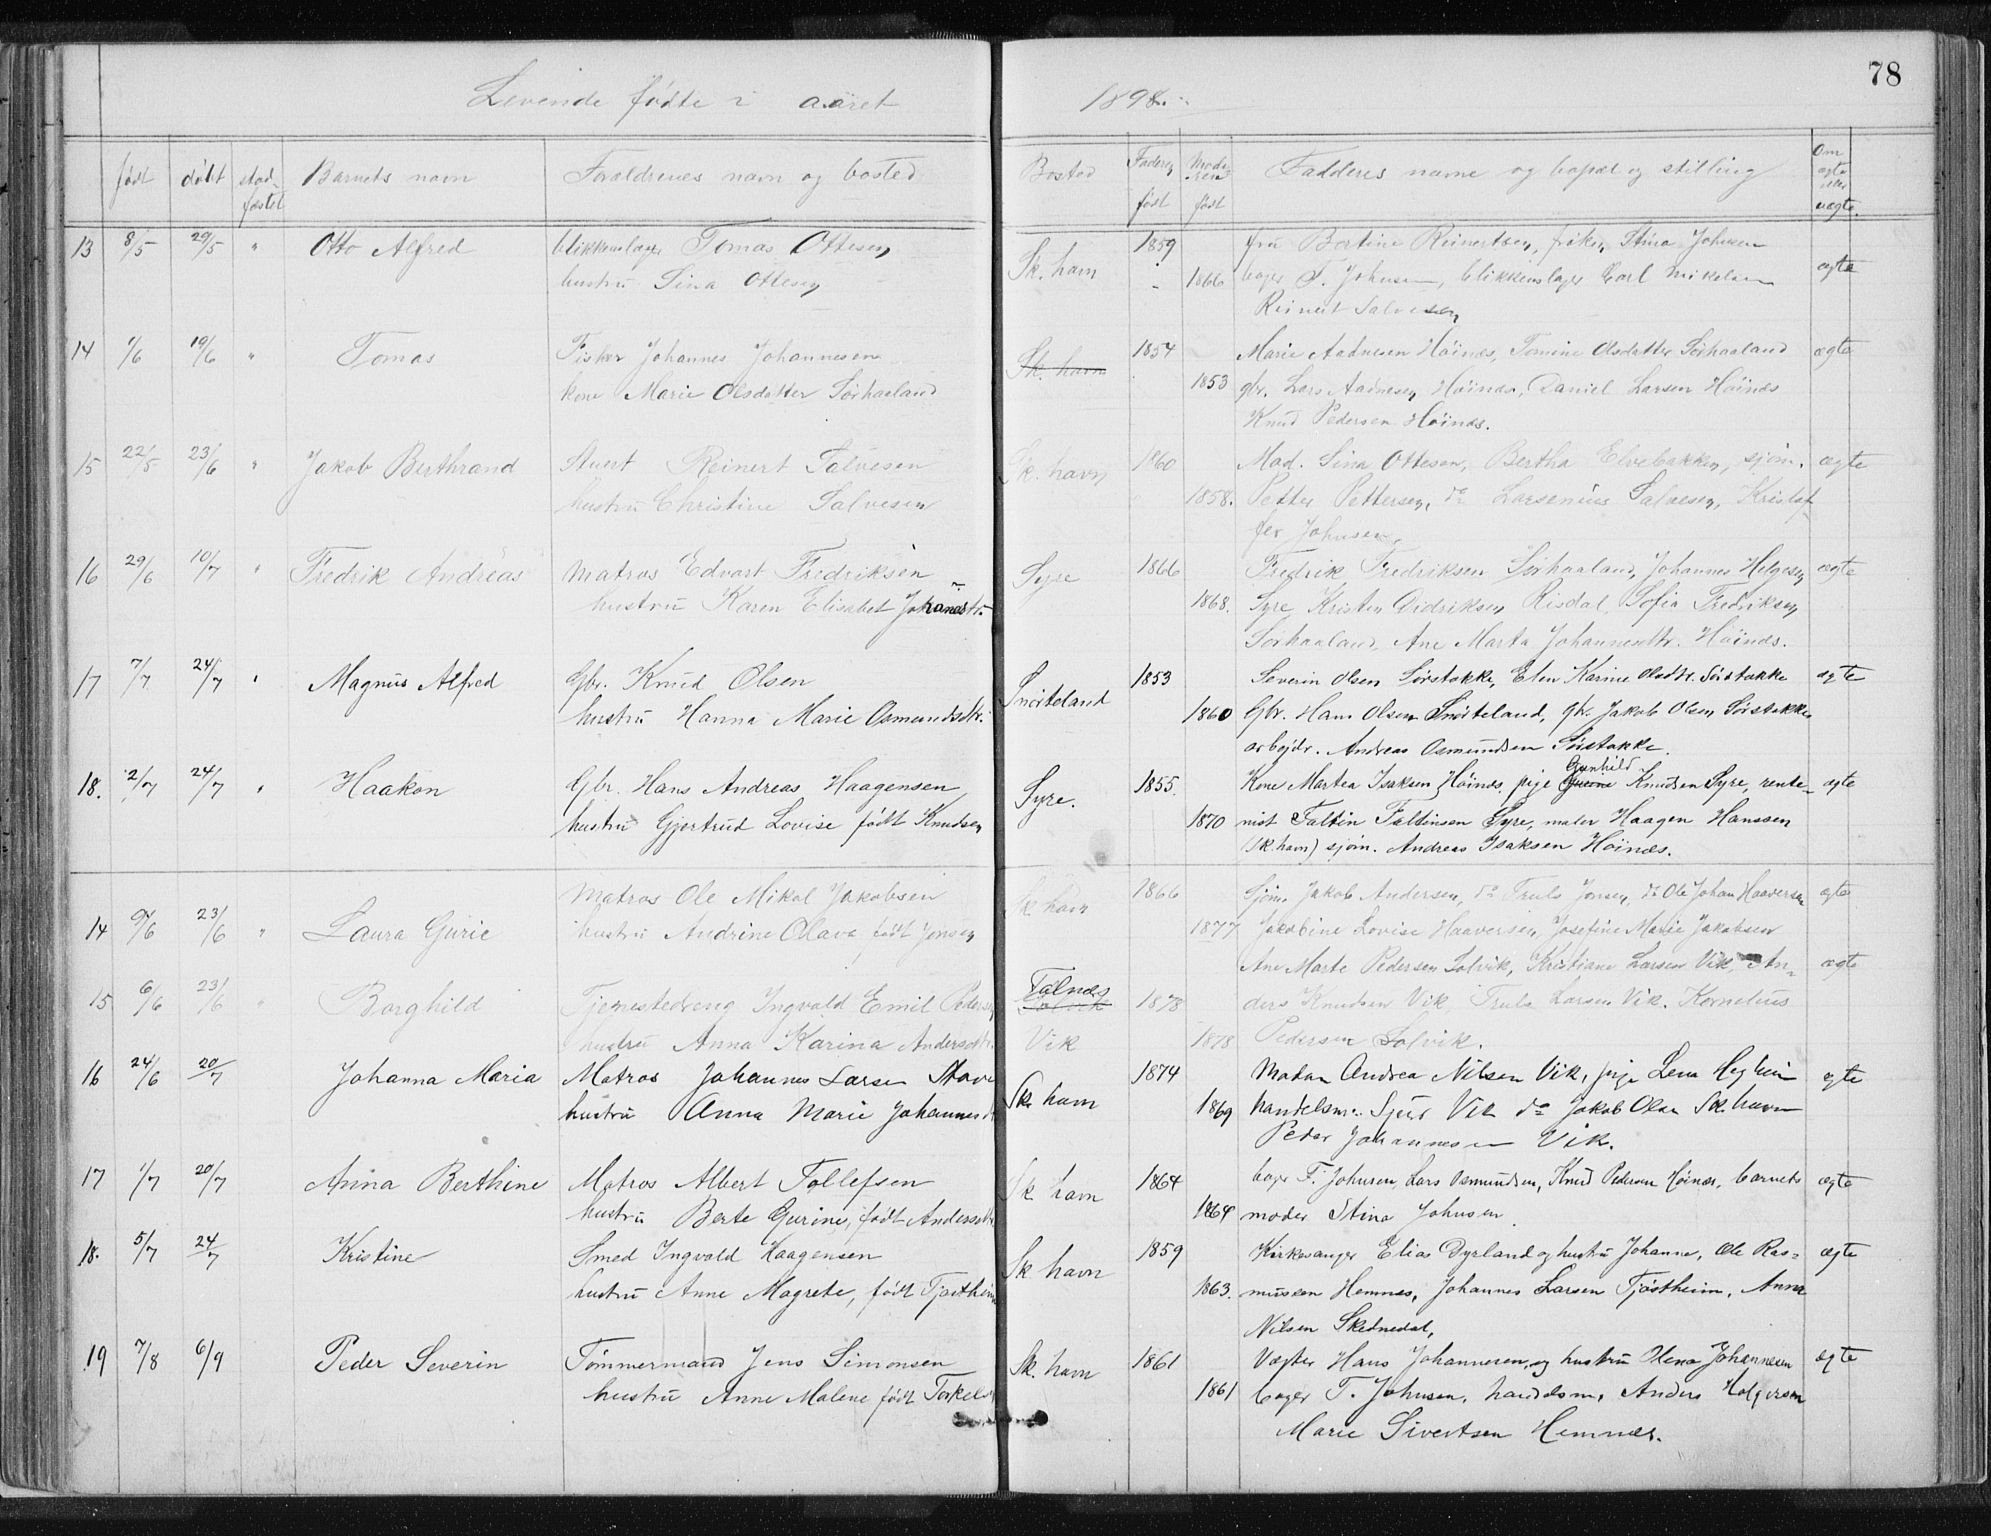 78
Levende fødte i aaret 1898.
født døbt stadfæstet Barnets navn Forældrenes navn og bosted Bosted Faderen født Moderen født Fadderes navne og bopæl og stilling Om ægte eller uægte.
13 8/5 29/5 " Otto Alfred blikkenslager Tomas Ottesen Sk. havn 1859 fru Bertine Reinertsen, frøken Stina Johnsen ægte
hustru Sina Ottesen 1866 bager T. Johnsen, blikkenslager Carl Mikelsen
Reinert Salvesen
14 1/6 19/6 " Tomas Fisker Johannes Johannesen Sk. havn 1854 Marie Aadnesen Höines, Tomine Olsdatter Sørhaaland ægte
kone Marie Olsdatter Sørhaaland 1853 gbr. Lars Aadnesen Höines, Daniel Larsen Höines
Knud Pedersen Höines.
15 22/5 23/6 " Jakob Berthrand Stuert Reinert Salvesen Sk. havn 1860 Mad. Sina Ottesen, Bertha Elvebakken, sjöm. ægte
hustru Christine Salvesen 1858. Petter Pettersen, do Larsenius Salvesen, Kristof
fer Johnsen
16 29/6 10/7 " Fredrik Andreas Matros Edvart Fredriksen Syre 1866 Fredrik Fredriksen Sørhaaland, Johannes Helgesen ægte
hustru Karen Elisabet Johansdtr. 1868. Syre, Kristen Didriksen Risdal, Sofia Fredriksen
Sørhaaland, Ane Marta Johannesdtr. Höines.
17 7/7 24/7 " Magnus Alfred Gbr. Knud Olsen Snörteland 1853 Severin Olsen Sörstokke, Elen Karine Olsdtr. Sörstokke ægte
hustru Hanna Marie Osmundsdtr. 1860 Gbr. Hans Olsen Snörteland, gbr. Jakob Olsen Sörstokke
arbejdr. Andreas Osmundsen Sörstokke.
18. 2/7 24/7 " Haakon Gbr. Hans Andreas Haagensen Syre. 1855. Kone Martea Isaksen Höines, pige Gunhild Knudsen Syre, rente- ægte
hustru Gjertrud Lovise født Knudsen 1870 nist Faltin Faltinsen Syre, maler Haagen Hanssen
(Sk. havn) sjöm. Andreas Isaksen Höines.
Matros Ole Mikal Jakobsen Sk. havn 1866 Sjöm. Jakob Andersen, do Truls Jensen, do Ole Johan Haaversen ægte
14 9/6 23/6 " Laura Gurie hustru Andrine Olava født Jensen 1877 Jakobine Lovise Haaversen, Josefine Marie Jakobsen
Ane Marte Pedersen Solvik, Kristiane Larsen Vik, An- ægte
15 6/6 23/6 " Borghild Tjenestedreng Ingvald Emil Pedersen Falnes Solvik 1878 ders Knudsen Vik, Truls Larsen Vik. Kornelius
hustru Anna Karina Andersdtr. Vik 1878 Pedersen Solvik.
16 24/6 20/7 Johanna Maria Matros Johannes Larsen Stave Sk. havn 1874 Madam Andrea Nilsen Vik, pige Lena Hegheim ægte
hustru Anna Marie Johannesd 1869 handelsm. Sjur Vik do Jakob Olsen Sk. havn
Peder Johannesen Vik.
17 1/7 20/7 Anna Berthine Matros Albert Tollefsen Sk. havn 1864 bager T. Johnsen, Lars Osmundsen, Knud Pedersen Höines, barnets ægte
hustru Berte Gurine, født Andersdtr 1864 moder Stina Johnsen.
18. 5/7 24/7 Kristine Smed Ingvald Haagensen Sk. havn 1859 Kirkesanger Elias Dyrland og hustru Johanne, Ole Ras- ægte
hustru Anne Magrete, født Tjøstheim 1863. mussen Hemnes, Johannes Larsen Tjøstheim, Anna
Nilsen Skednedal,
19 7/8 6/9 Peder Severin Tømmermand Jens Simonsen Sk. havn 1861 Vægter Hans Johannesen, og hustru Olena Johannesen ægte
hustru Anne Malene født Torkels 1861 bager T. Johnsen, handelsm. Anders Holgersen
Marie Sivertsen Hemnes.